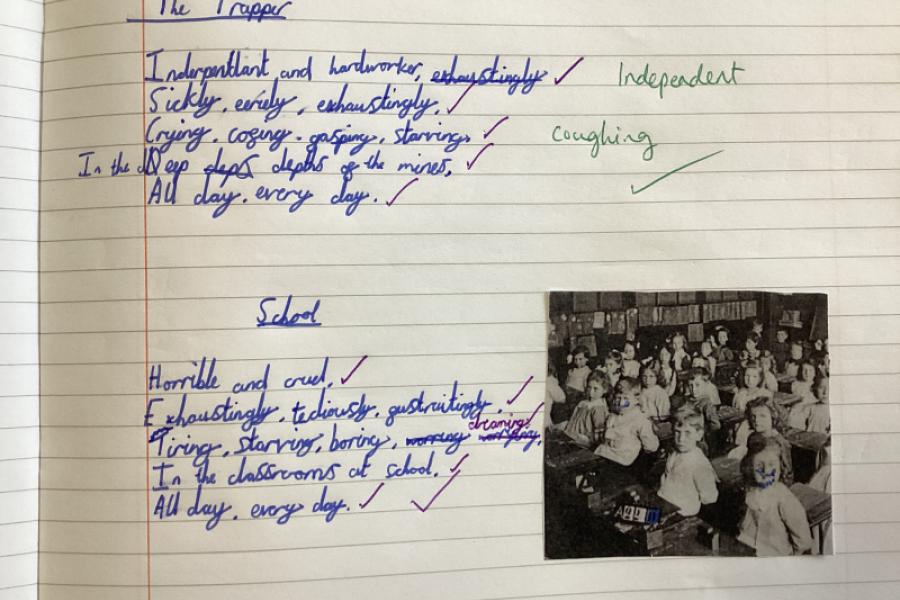 The Trapper
Inderpentlant and hardworker, exhaustingly Independent
Sickly, eeriely, exhaustingly,
Crying, coging, gasping, starving, coughing
In the dDeep deps depths of the mines,
All day, every day.
School
Horrible and cruel,
Exhaustingly, tediously, gustruitingly,
dreaming,
Tiring, starving, boring, worring worrying,
In the classrooms at school.
All day, every day.